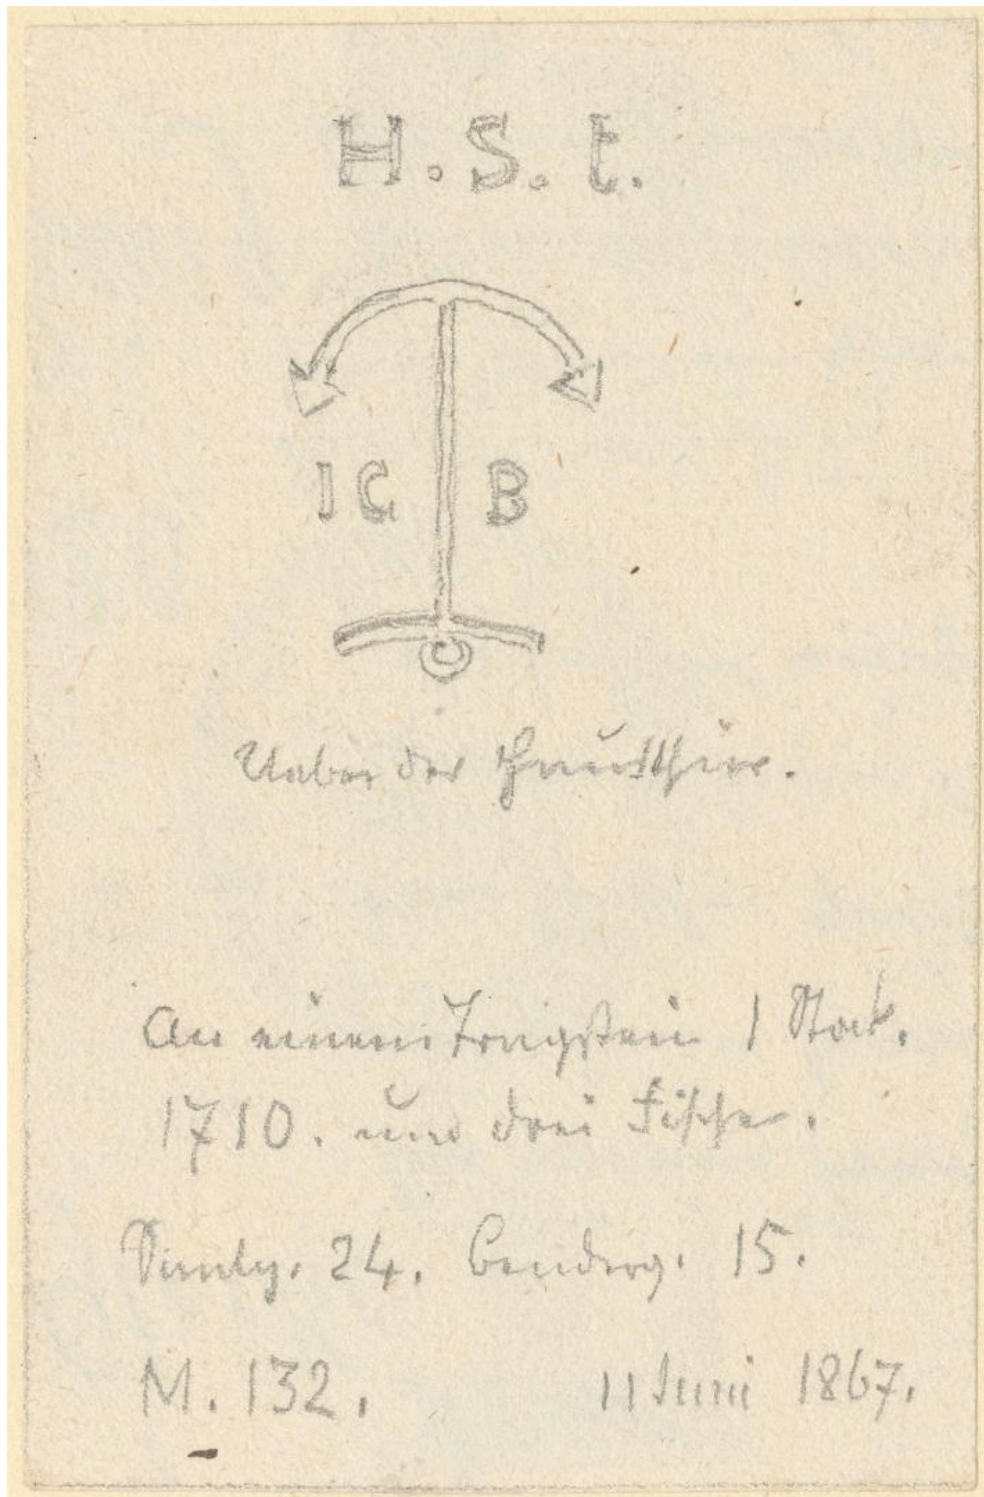 H. S. t.
IC B
Ueber der Hausthüre.
An einem Tragstein 1 Stock.
1710. und drei Fische.
24. Bendergs. 15.
M. 132. 11 Juni 1867.